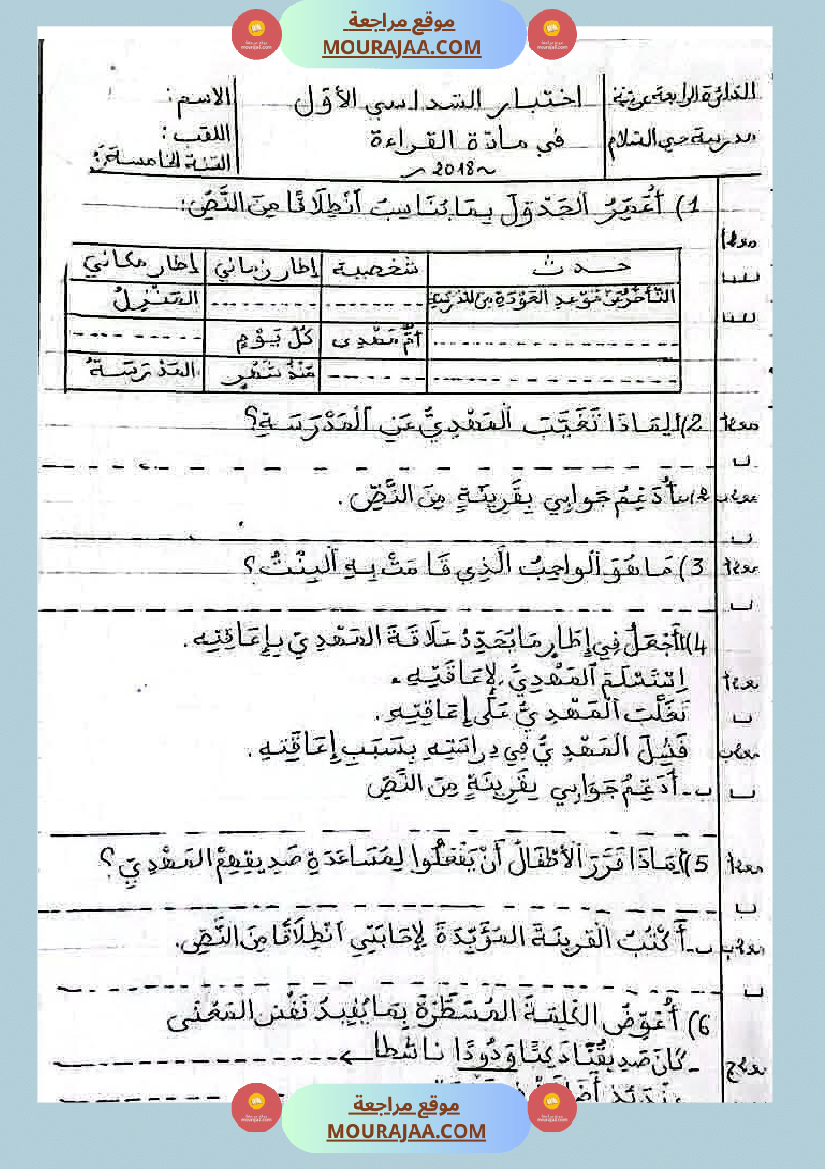 موقع مراجعة
MOURAJAA.COM
اختبار السداسي الأوّل
في مادّة القراءة
~2018~
الاسم:
اللقب:
السّنة الخامسة
مدرسة حي السّلام
1) أُعَمِّرُ الجَدْوَلَ بِمَا يُنَاسِبُ انْطِلَاقًا مِنَ النَّصِّ:
حدث شخصية إطار زماني إطار مكاني
التَّأَخُّرُ عَنْ مَوْعِدِ العَوْدَةِ مِنَ المَدْرَسَةِ المَنْزِلُ
أُمُّ مَهْدِي كُلَّ يَوْمٍ
مُنْذُ شَهْرٍ المَدْرَسَةُ
2) أ لِمَاذَا تَغَيَّبَ المَهْدِيُّ عَنِ المَدْرَسَةِ؟
أُدَعِّمُ جَوَابِي بِقَرِينَةٍ مِنَ النَّصِّ.
3) مَا هُوَ الوَاجِبُ الَّذِي قَامَتْ بِهِ البِنْتُ؟
4) أ أَجْعَلُ فِي إِطَارٍ مَا يُحَدِّدُ عَلَاقَةَ المَهْدِيّ بِإِعَاقَتِهِ.
اِسْتَسْلَمَ المَهْدِيُّ لِإِعَاقَتِهِ.
تَغَلَّبَ المَهْدِيُّ عَلَى إِعَاقَتِهِ.
فَشِلَ المَهْدِيُّ فِي دِرَاسَتِهِ بِسَبَبِ إِعَاقَتِهِ.
ب- أُدَعِّمُ جَوَابِي بِقَرِينَةٍ مِنَ النَّصِّ
5) أ لِمَاذَا قَرَّرَ الأَطْفَالُ أَنْ يَفْعَلُوا لِمُسَاعَدَةِ صَدِيقِهِمْ المَهْدِيّ؟
ب- أَكْتُبُ القَرِينَةَ المُؤَيِّدَةَ لِإِجَابَتِي انْطِلَاقًا مِنَ النَّصِّ.
6) أُعَوِّضُ الكَلِمَةَ المُسَطَّرَةَ بِمَا يُفِيدُ نَفْسَ المَعْنَى
- كَانَ صَدِيقُنَا وَدُودًا نَاشِطًا
موقع مراجعة
MOURAJAA.COM